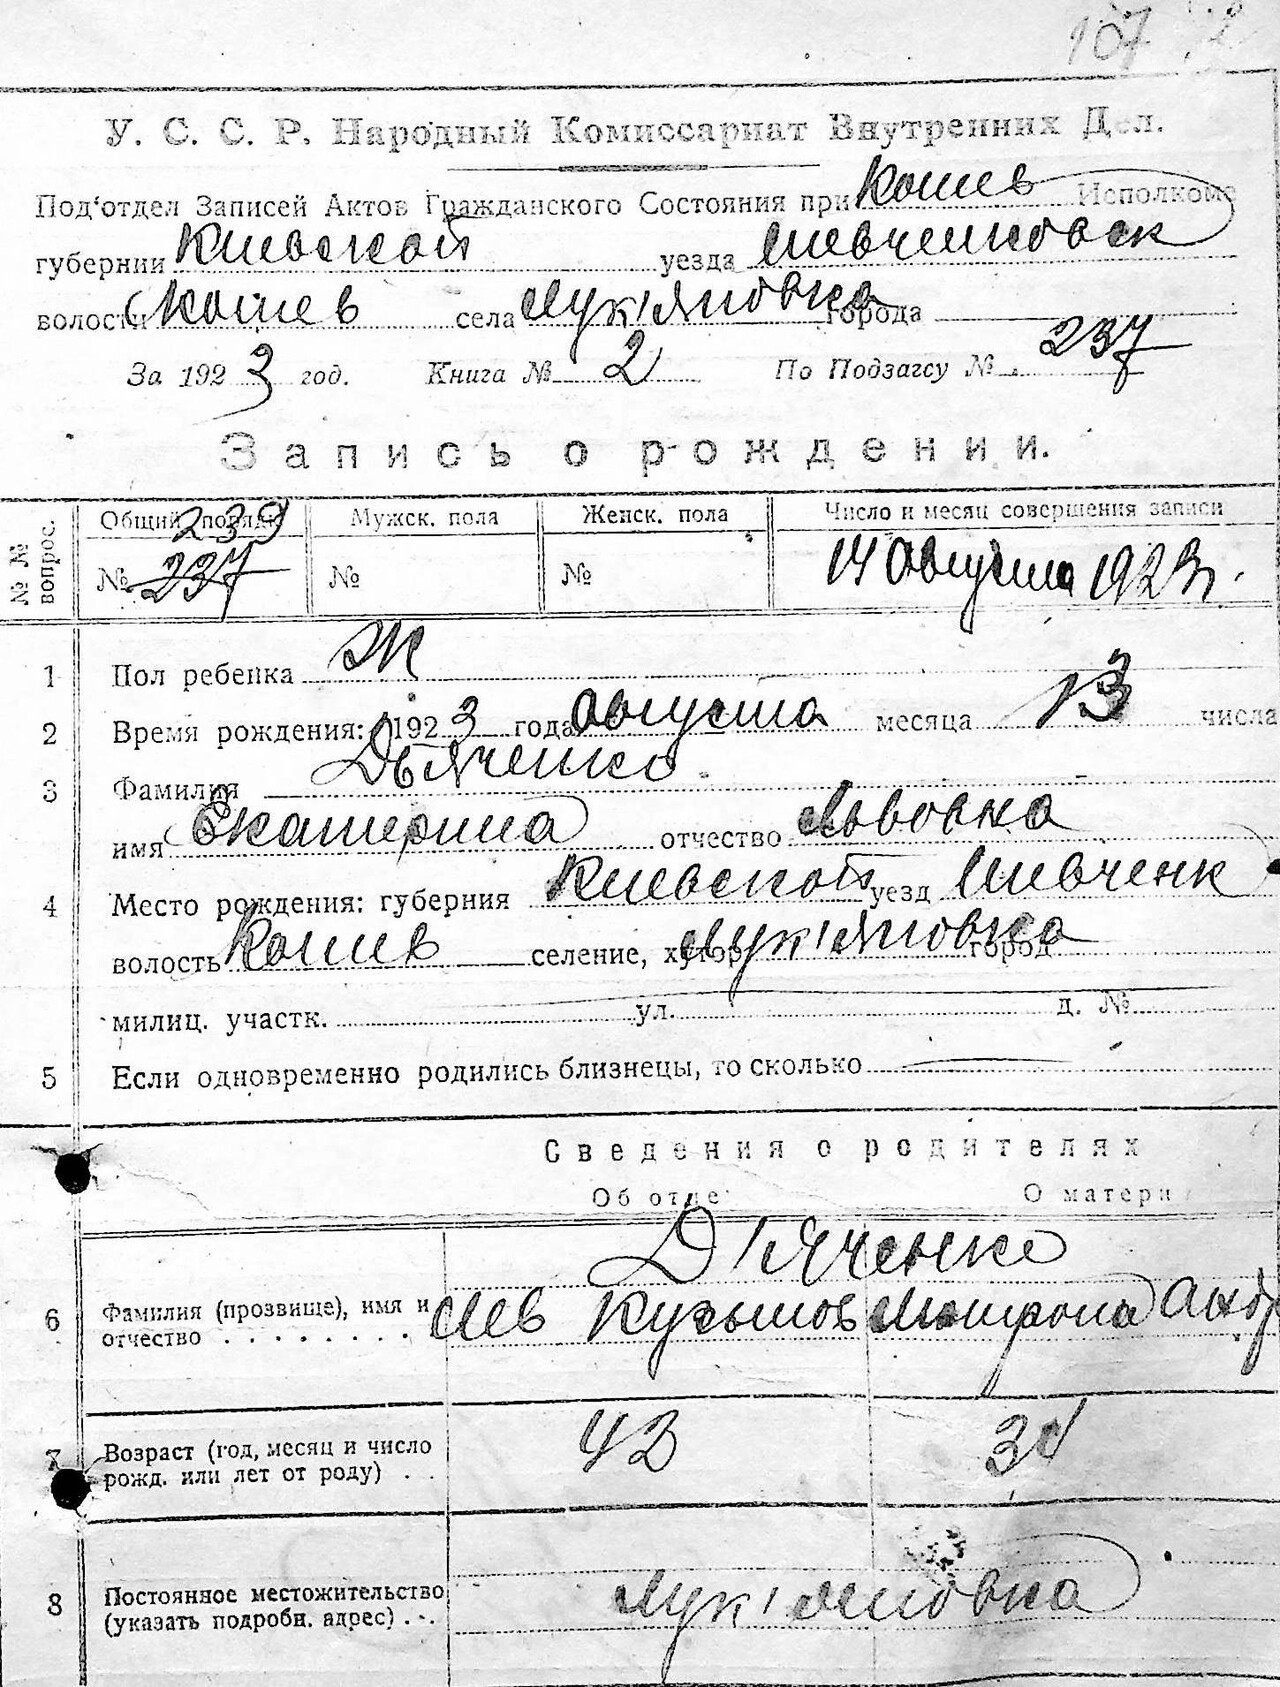 107
У. С. С. Р. Народный Комиссариат Внутренних Дел.
Под'отдел Записей Актов Гражданского Состояния при Кошев Исполкоме
губернии Киевской уезда Шевченковск
волости Кошев села Лук'яновка города
За 1923 год. Книга № 2 По Подзагсу № 237
Запись о рождении.
№ № вопрос. Общий порядк Мужск. пола Женск. пола Число и месяц совершения записи
239
№ 237 № № 14 августа 1923 г.
1 Пол ребенка Ж
2 Время рождения: 1923 года августа месяца 13 числа
3 Фамилия Дьяченко
имя Екатерина отчество Львовна
4 Место рождения: губерния Киевской уезд Шевченк
волость Кошев селение, хутор Лук'яновка город
милиц. участк. ул. д. №
5 Если одновременно родились близнецы, то сколько
Сведения о родителях
Об отце О матери
Д'яченко
6 Фамилия (прозвище), имя и отчество Лев Кузьмов Мотрона Андр
7 Возраст (год, месяц и число рожд. или лет от роду) 43 34
8 Постоянное местожительство (указать подробн. адрес) Лук'яновка